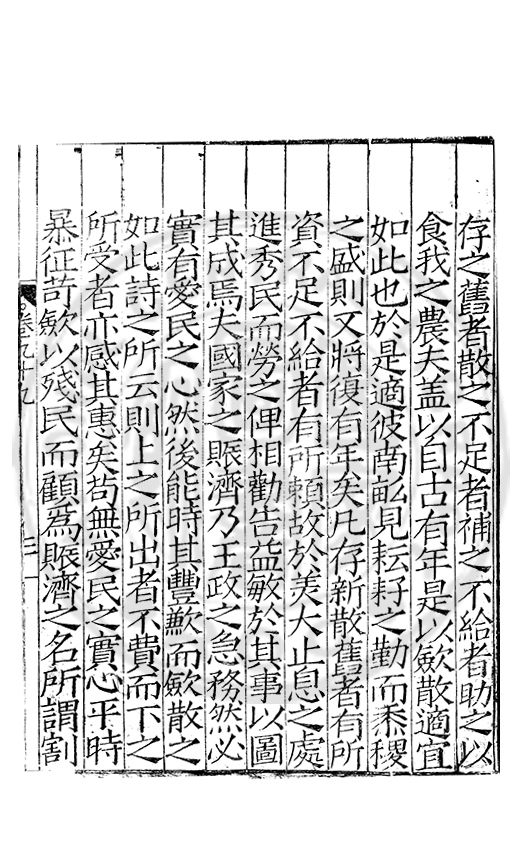 存之舊者散之不足者補之不給者助之以
食我之農夫盖以自古有年是以歛散適宜
如此也於是適彼南畝見耘耔之勤而黍稷
之盛則又將復有年矣凡存新散舊者有所
資不足不給者有所頼故於羙大止息之處
進秀民而勞之俾相勸告益敏於其事以圖
其成焉夫國家之賑濟乃王政之急務然必
實有愛民之心然後能時其豐歉而歛散之
如此詩之所云則上之所出者不費而下之
所受者亦感其惠矣苟無愛民之實心平時
暴征苛歛以殘民而顧爲賑濟之名所謂割
卷五十九
三